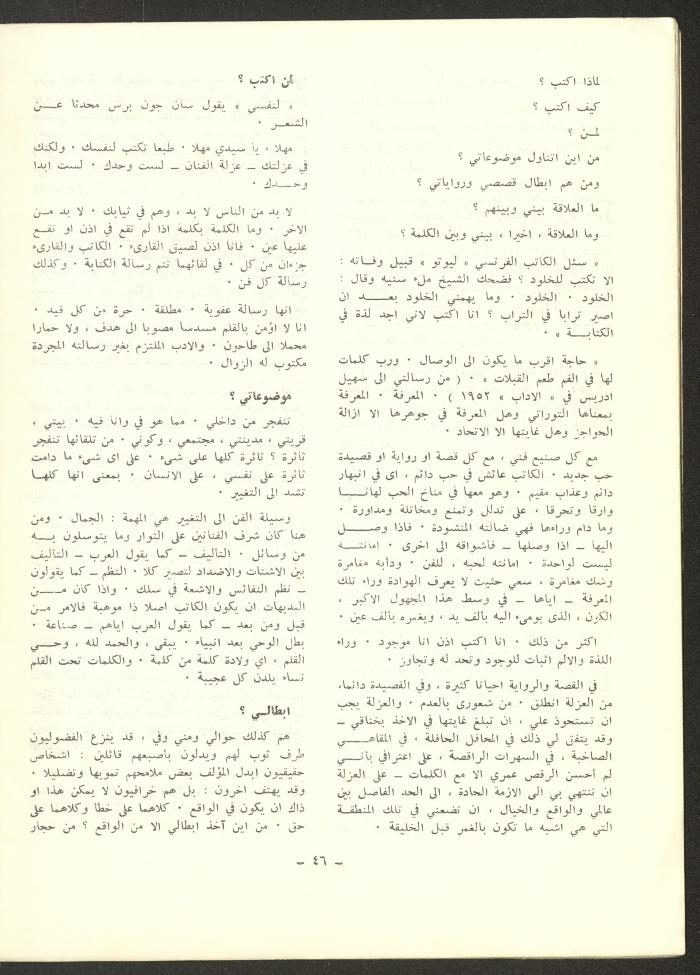 لماذا اكتب ؟
كيف اكتب ؟
لمـن ؟
من اين اتناول موضوعاتي ؟
ومن هم ابطال قصصي ورواياتي ؟
ما العلاقة بيني وبينهم ؟
وما العلاقة ، اخيرا ، بيني وبين الكلمة ؟
« سئل الكاتب الفرنسي « ليوتو » قبيل وفـاته :
الا تكتب للخلود ؟ فضحك الشيخ ملء سنيه وقال :
الخلود ٠ الخلود ٠ وما يهمني الخلود بعــــد ان
اصير ترابا في التراب ؟ انا اكتب لاني اجد لذة في
الكتابــــة » ٠
« حاجة اقرب ما يكون الى الوصال ٠ ورب كلمات
لها في الفم طعم القبلات » ٠ ( من رسالتي الى سهيل
ادريس في « الاداب » ١٩٥٢ ) ٠ المعرفة ٠ المعرفة
بمعناها التوراتي وهل المعرفة في جوهرها الا ازالة
الحواجز وهل غايتها الا الاتحاد ٠
مع كل صنيع فني ، مع كل قصة او رواية او قصيدة
حب جديد ٠ الكاتب عائش في حب دائم ، اى في انبهار
دائم وعذاب مقيم ٠ وهو معها في مناخ الحب لهاثـــا
وارقا وتحرقا ، على تدلل وتمنع ومخاتلة ومداورة ٠
وما دام وراءها فهي ضالته المنشودة ٠ فاذا وصـــل
اليها ــ اذا وصلها ــ فأشواقه الى اخرى ٠ امانتـــه
ليست لواحدة ٠ امانته لحبه ، للفن ٠ ودأبه مغامرة
وتلك مغامرة ، سعي حثيث لا يعرف الهوادة وراء تلك
المعرفة ــ اياها ــ في وسط هذا المجهول الاكبر ،
الكون ، الذى يومىء اليه بالف يد ، ويغمره بالف عين ٠
اكثر من ذلك ٠ انا اكتب اذن انا موجود ٠ وراء
اللذة والالم اثبات للوجود وتحد له وتجاوز ٠
في القصة والرواية احيانا كثيرة ، وفي القصيدة دائما،
من العزلة انطلق ٠ من شعورى بالعدم ٠ والعزلة يجب
ان تستحوذ علي ، ان تبلغ غايتها في الاخذ بخناقي ــ
وقد يتفق لي ذلك في المحافل الحافلة ، في المقاهــي
الصاخبة ، في السهرات الراقصة ، على اعترافي بأنــي
لم أحسن الرقص عمري الا مع الكلمات ــ على العزلة
ان تنتهي بي الى الازمة الحادة ، الى الحد الفاصل بين
عالمي والواقع والخيال ، ان تضعني في تلك المنطقــة
التي هي اشبه ما تكون بالغمر قبل الخليقة ٠
لمن اكتب ؟
« لنفسي » يقول سان جون برس محدثا عـــن
الشعــر ٠
مهلا ، يا سيدي مهلا ٠ طبعا تكتب لنفسك ٠ ولكنك
في عزلتك ــ عزلة الفنان ــ لست وحدك ٠ لست ابدا
وحــدك ٠
لا بد من الناس لا بد ، وهم في ثيابك ٠ لا بد مــن
الاخر ٠ وما الكلمة بكلمة اذا لم تقع في اذن او تقــع
عليها عين ٠ فانا اذن لصيق القارىء ٠ الكاتب والقارىء
جزءان من كل ٠ في لقائهما تتم رسالة الكتابة ٠ وكذلك
رسالة كل فن ٠
انها رسالة عفوية ٠ مطلقة ٠ حرة من كل قيد ٠
انا لا اؤمن بالقلم مسدسا مصوبا الى هدف ، ولا حمارا
محملا الى طاحون ٠ والادب الملتزم بغير رسالته المجردة
مكتوب له الزوال ٠
موضوعاتي ؟
تتفجر من داخلي ٠ مما هو في وانا فيه ٠ بيتي ،
قريتي ، مدينتي ، مجتمعي ، وكوني ٠ من تلقائها تتفجر
ثائرة ؟ ثائرة كلها على شىء ٠ على اى شىء ما دامت
ثائرة على نفسي ، على الانسان ٠ بمعنى انها كلهــا
تشد الى التغيير ٠
وسيلة الفن الى التغيير هي المهمة : الجمال ٠ ومن
هنا كان شرف الفنانين على الثوار وما يتوسلون بــه
من وسائل ٠ التأليف ــ كما يقول العرب ــ التأليف
بين الاشتات والاضداد لتصير كلا ٠ النظم ــ كما يقولون
ــ نظم النفائس والاشعة في سلك ٠ واذا كان مـــن
البديهات ان يكون الكاتب اصلا ذا موهبة فالامر مــن
قبل ومن بعد ــ كما يقول العرب اياهم ــ صناعة ٠
بطل الوحي بعد انبياء ٠ يبقى ، والحمد لله ، وحــي
القلم ، اي ولادة كلمة من كلمة ٠ والكلمات تحت القلم
نساء يلدن كل عجيبة ٠
ابطالـي ؟
هم كذلك حوالي ومني وفي ، قد ينزع الفضوليون
طرف ثوب لهم ويدلون بأصبعهم قائلين : اشخاص
حقيقيون ابدل المؤلف بعض ملامحهم تمويها وتضليلا ٠
وقد يهتف اخرون : بل هم خرافيون لا يمكن هذا او
ذاك ان يكون في الواقع ٠ كلاهما على خطأ وكلاهما على
حق ٠ من اين آخذ ابطالي الا من الواقع ؟ من حجار
– ٤٦ –